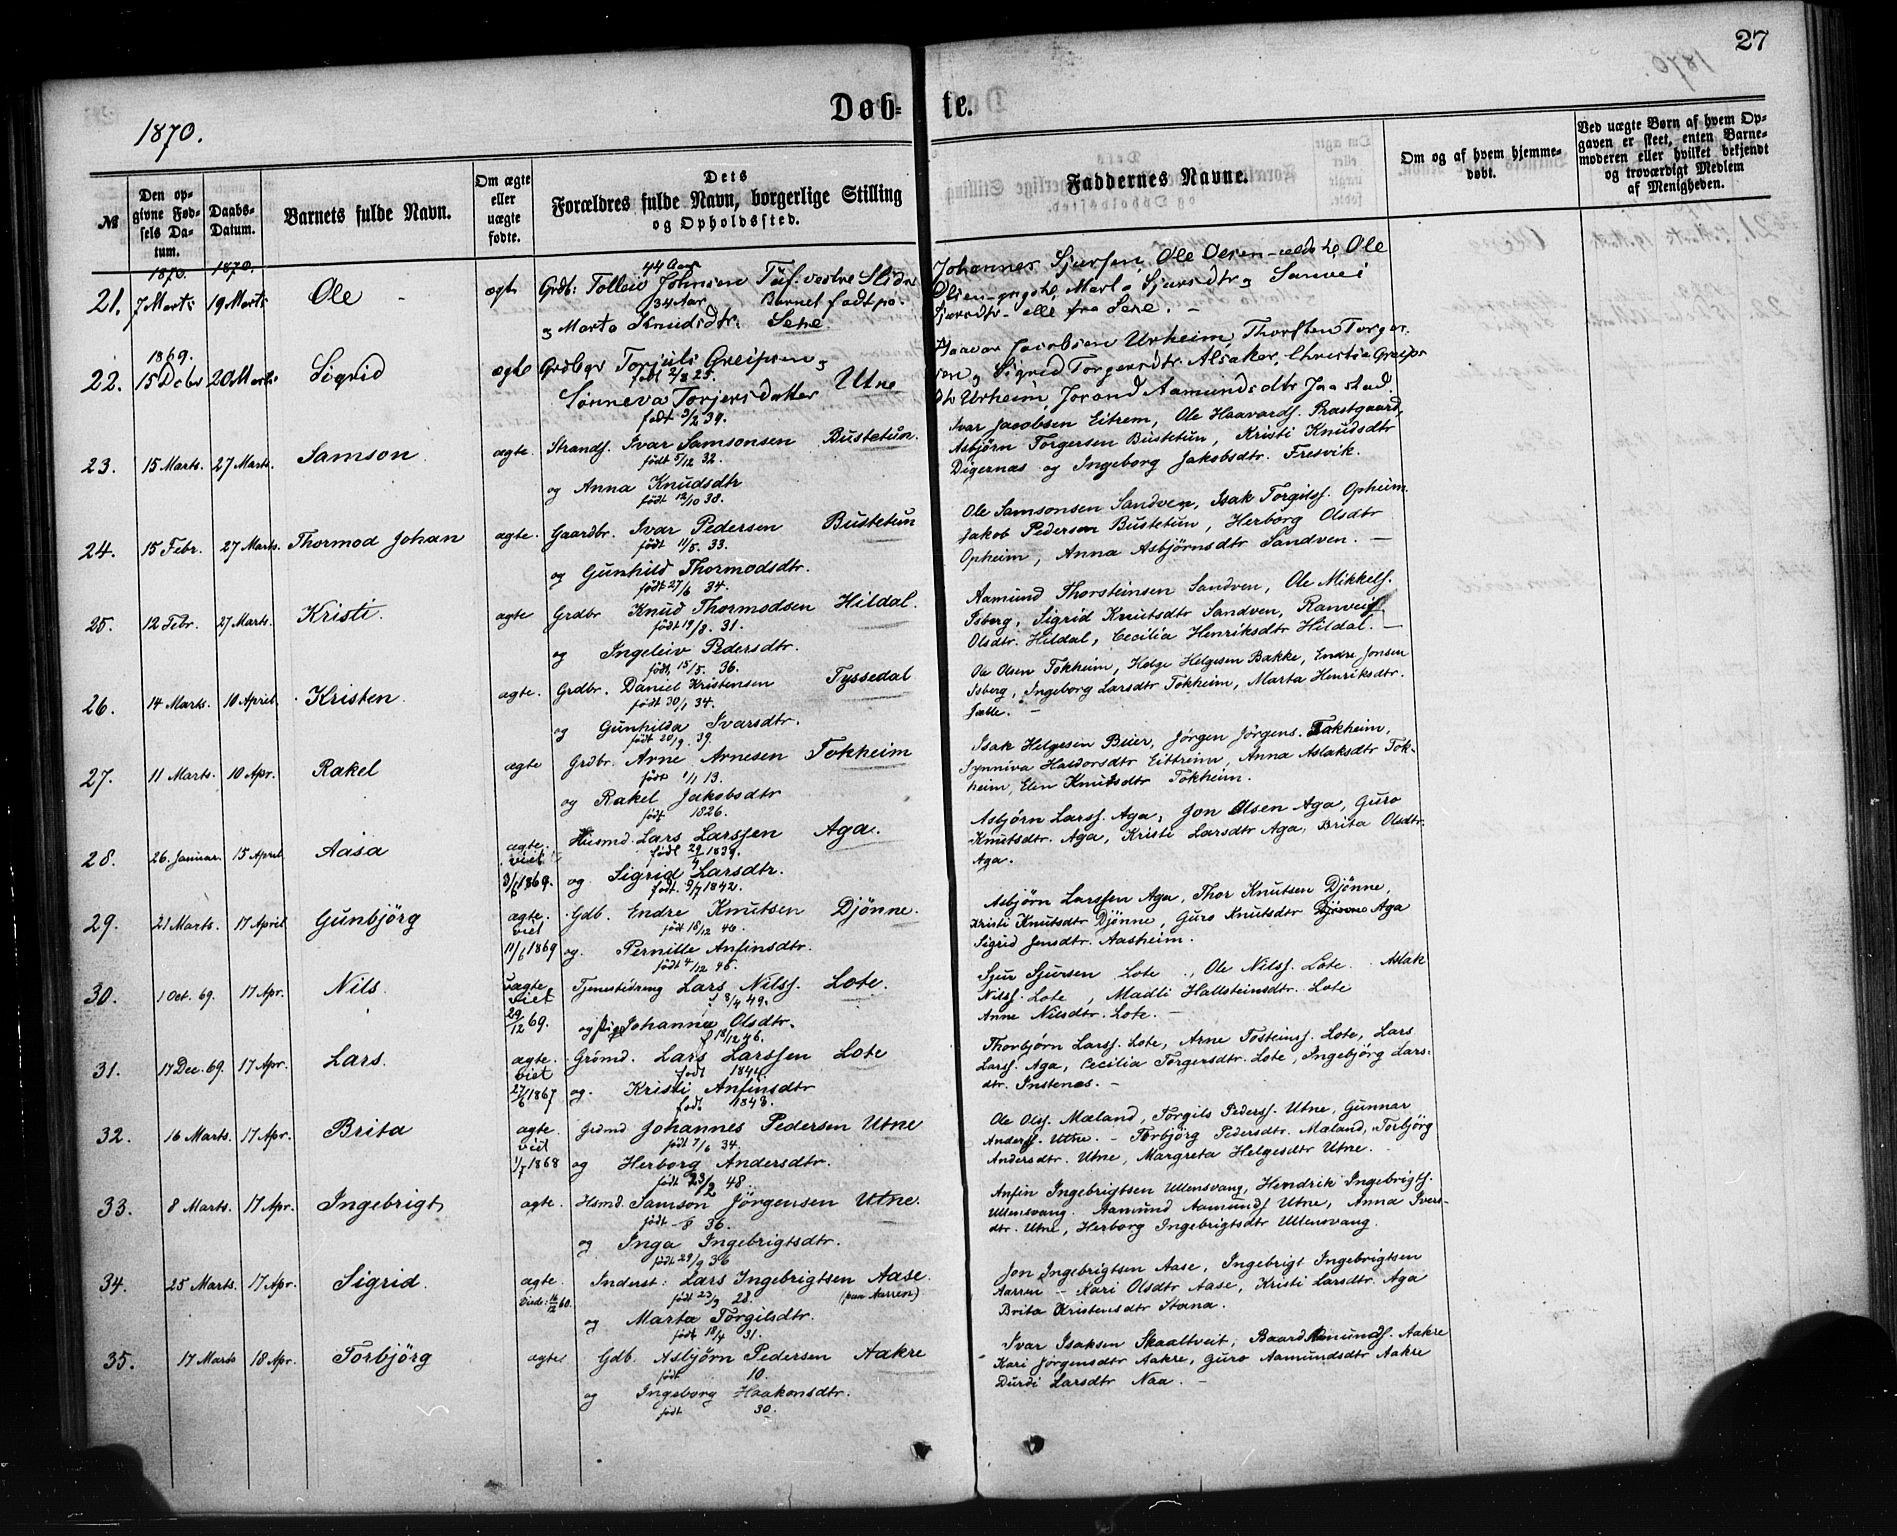 27
1870.
Døb- te.
№
Den opgivne Fødsels Datum.
Daabs-Datum.
Barnets fulde Navn.
Om ægte eller uægte fødte.
Dets Forældres fulde Navn, borgerlige Stilling og Opholdssted.
Faddernes Navne.
Om og af hvem hjemmedøbt.
Ved uægte Børn af hvem Opgaven er skeet, enten Barnemoderen eller hvilket bekjendt og troværdigt Medlem af Menigheden.
1870. 1870.
21. 7 Marts 19 Marts Ole ægte Grdb: Tolleiv Johnsen
44 Aar
34 Aar Barnet født paa
Marta Knudsdtr. Sexe.
Johannes Sjursen, Ole Olsen ældste, Ole
Olsen yngste, Marta Sjursdtr,
Sjursdtr - alle fra Sexe. -
1869.
22. 15 Dcbr 20 Marts Sigrid ægte Grdbgr Torjuls Greipsen
født 2/8 25.
Sønneva Torjersdatter Utne
født 9/2 39.
Haavar Jacobsen Urheim, Thorsten Torger-
sen, Sigrid Torgersdtr Alsaker, Christie Greips-
dtr Urheim, Jorand Aamundsdtr Jaastad.
23. 15 Marts. 27 Marts. Samson. ægte. Strands. Ivar Samsonsen Bustetun.
født 5/12 32.
og Anna Knudsdtr
født 12/10 38.
Ivar Jacobsen Eitrem, Ole Haavards. Prastgaard,
Asbjörn Torgersen Bustetun, Kristi Knudsdtr
Digernæs og Ingeborg Jakobsdtr. Fresvik.
24. 15 Febr. 27 Marts. Thormod Johan ægte. Gaardbr. Ivar Pedersen Bustetun
født 11/5. 33.
og Gunhild Thormodsdtr.
født 27/6 34.
Ole Samsonsen Sandven, Isak Torgilss. Opheim.
Jakob Pedersen Bustetun, Herborg Olsdtr
Opheim, Anna Asbjörnsdtr Sandven. -
25. 12 Febr. 27 Marts. Kristi. ægte Grdbr Knud Thormodsen Hildal.
født 19/8. 31.
og Ingeleiv Pedersdtr.
født 15/5. 36.
Aamund Thorsteinsen Sandven, Ole Mikkels.
Isberg, Sigrid Knutsdtr Sandven, Ranveig
Olsdtr. Hildal, Cecilia Henriksdtr Hildal. -
26. 14 Marts. 10 April. Kristen. ægte. Grdbr. Daniel Kristensen Tyssedal
født 30/1 34.
og Gunhilda Ivarsdtr.
født 20/9. 39.
Ole Olsen Tokheim, Helge Helgesen Bakke, Endre Jonsen
Isberg, Ingeborg Larsdtr Tokheim, Marta Henriksdtr.
Jælle. -
27. 11 Marts. 10 Apr. Rakel ægte Grdbr. Arne Arnesen Tokheim
født 1/1 13.
og Rakel Jakobsdtr
født 1826.
Isak Helgesen Beier, Jörgen Jörgens. Tokheim,
Synniva Haldorsdtr Eittreim, Anna Aslaksdtr Tok-
heim, Elen Knutsdtr Tokheim.
28. 26. Januar. 15 April Aasa ægte. viet Husmd. Lars Larssen Aga.
født 29/4 1839.
1869. og Sigrid Larsdtr.
født. 5/7 1842.
Asbjørn Larss. Aga, Jon Olsen Aga, Guro
Knutsdtr. Aga, Kristi Larsdtr Aga, Brita Olsdtr.
Aga.
29. 21 Marts. 17 April Gunbjörg ægte. viet Gdb. Endre Knutsen Djönne.
født 18/12 40.
11/6 1869 og. Pernille Anfinsdtr.
født 4/12 45.
Asbjørn Larssen Aga, Thor Knutsen Djönne,
Kristi Knutsdtr Djönne, Guro Knutsdtr Djönne Aga
Sigrid Jensdtr. Aasheim.
30. 1 Oct. 69. 17 Apr. Nils. uægte viet Tjenestedreng Lars Nilss. Lote.
f 8/4 49.
29/12 69. og Pige Johanna Olsdtr.
f 18/12 46.
Sjur Sjursen Lote, Ole Nilss. Lote. Aslak
Nilss. Lote, Madli Hallsteinsdtr. Lote
Anne Nilsdtr. Lote. -
31. 17 Dec. 69. 17 Apr. Lars. ægte. viet Grömd. Lars Larssen Lote
født 1844.
27/6 1867 og. Kristi Anfinsdtr
født 1843.
Thorbjörn Larss. Lote, Arne Tosteinss. Lote, Lars
Larss. Aga, Cecilia Torgersdtr. Lote, Ingebjörg Lars-
dtr. Instenes. -
32. 16 Marts. 17 Apr. Brita ægte. viet Grömd Johannes Pedersen Utne
født 7/6 34.
1/7 1868 og Herborg Andersdtr.
født 23/2 48.
Ole Olss. Mæland, Torgils Peders. Utne, Gunnar
Anderss. Utne. - Torbjörg Pedersdtr. Mæland, Torbjörg
Andersdtr. Utne, Margreta Helgesdtr Utne.
33. 8 Marts. 17 Apr. Ingebrigt ægte. Hsmd. Samson Jörgensen Utne.
født 36.
og Inga Ingebrigtsdtr.
født 29/9 36
Anfin Ingebrigtsen Ullensvang, Hendrik Ingebrigts.
Ullensvang. Aamund Aamunds Utne, Anna Ivers-
dtr. Utne, Herborg Ingebrigtsdtr Ullensvang.
34. 25 Marts. 17 Apr. Sigrid. ægte. Inderst: Lars Ingebrigtsen Aase.
Viede: 16/12 60. født 23/9 28. (paa Aarren)
og Marta Torgilsdtr.
født 18/4 31.
Jon Ingebrigtsen Aase, Ingebrigt Ingebrigtsen
Aarren - Kari Olsdtr Aase, Kristi Larsdtr. Aga
Brita Kristensdtr Stana.
35. 17 Marts 18 Apr. Torbjörg ægte Gdb. Asbjørn Pedersen Aakre
født 10.
og Ingeborg Haakonsdtr.
født 30.
Ivar Isaksen Skaaltveit, Baard Aamunds. Aakre
Kari Jörgensdtr Aakre, Guro Aamundsdtr Aakre
Durdi Larsdtr Naa. -